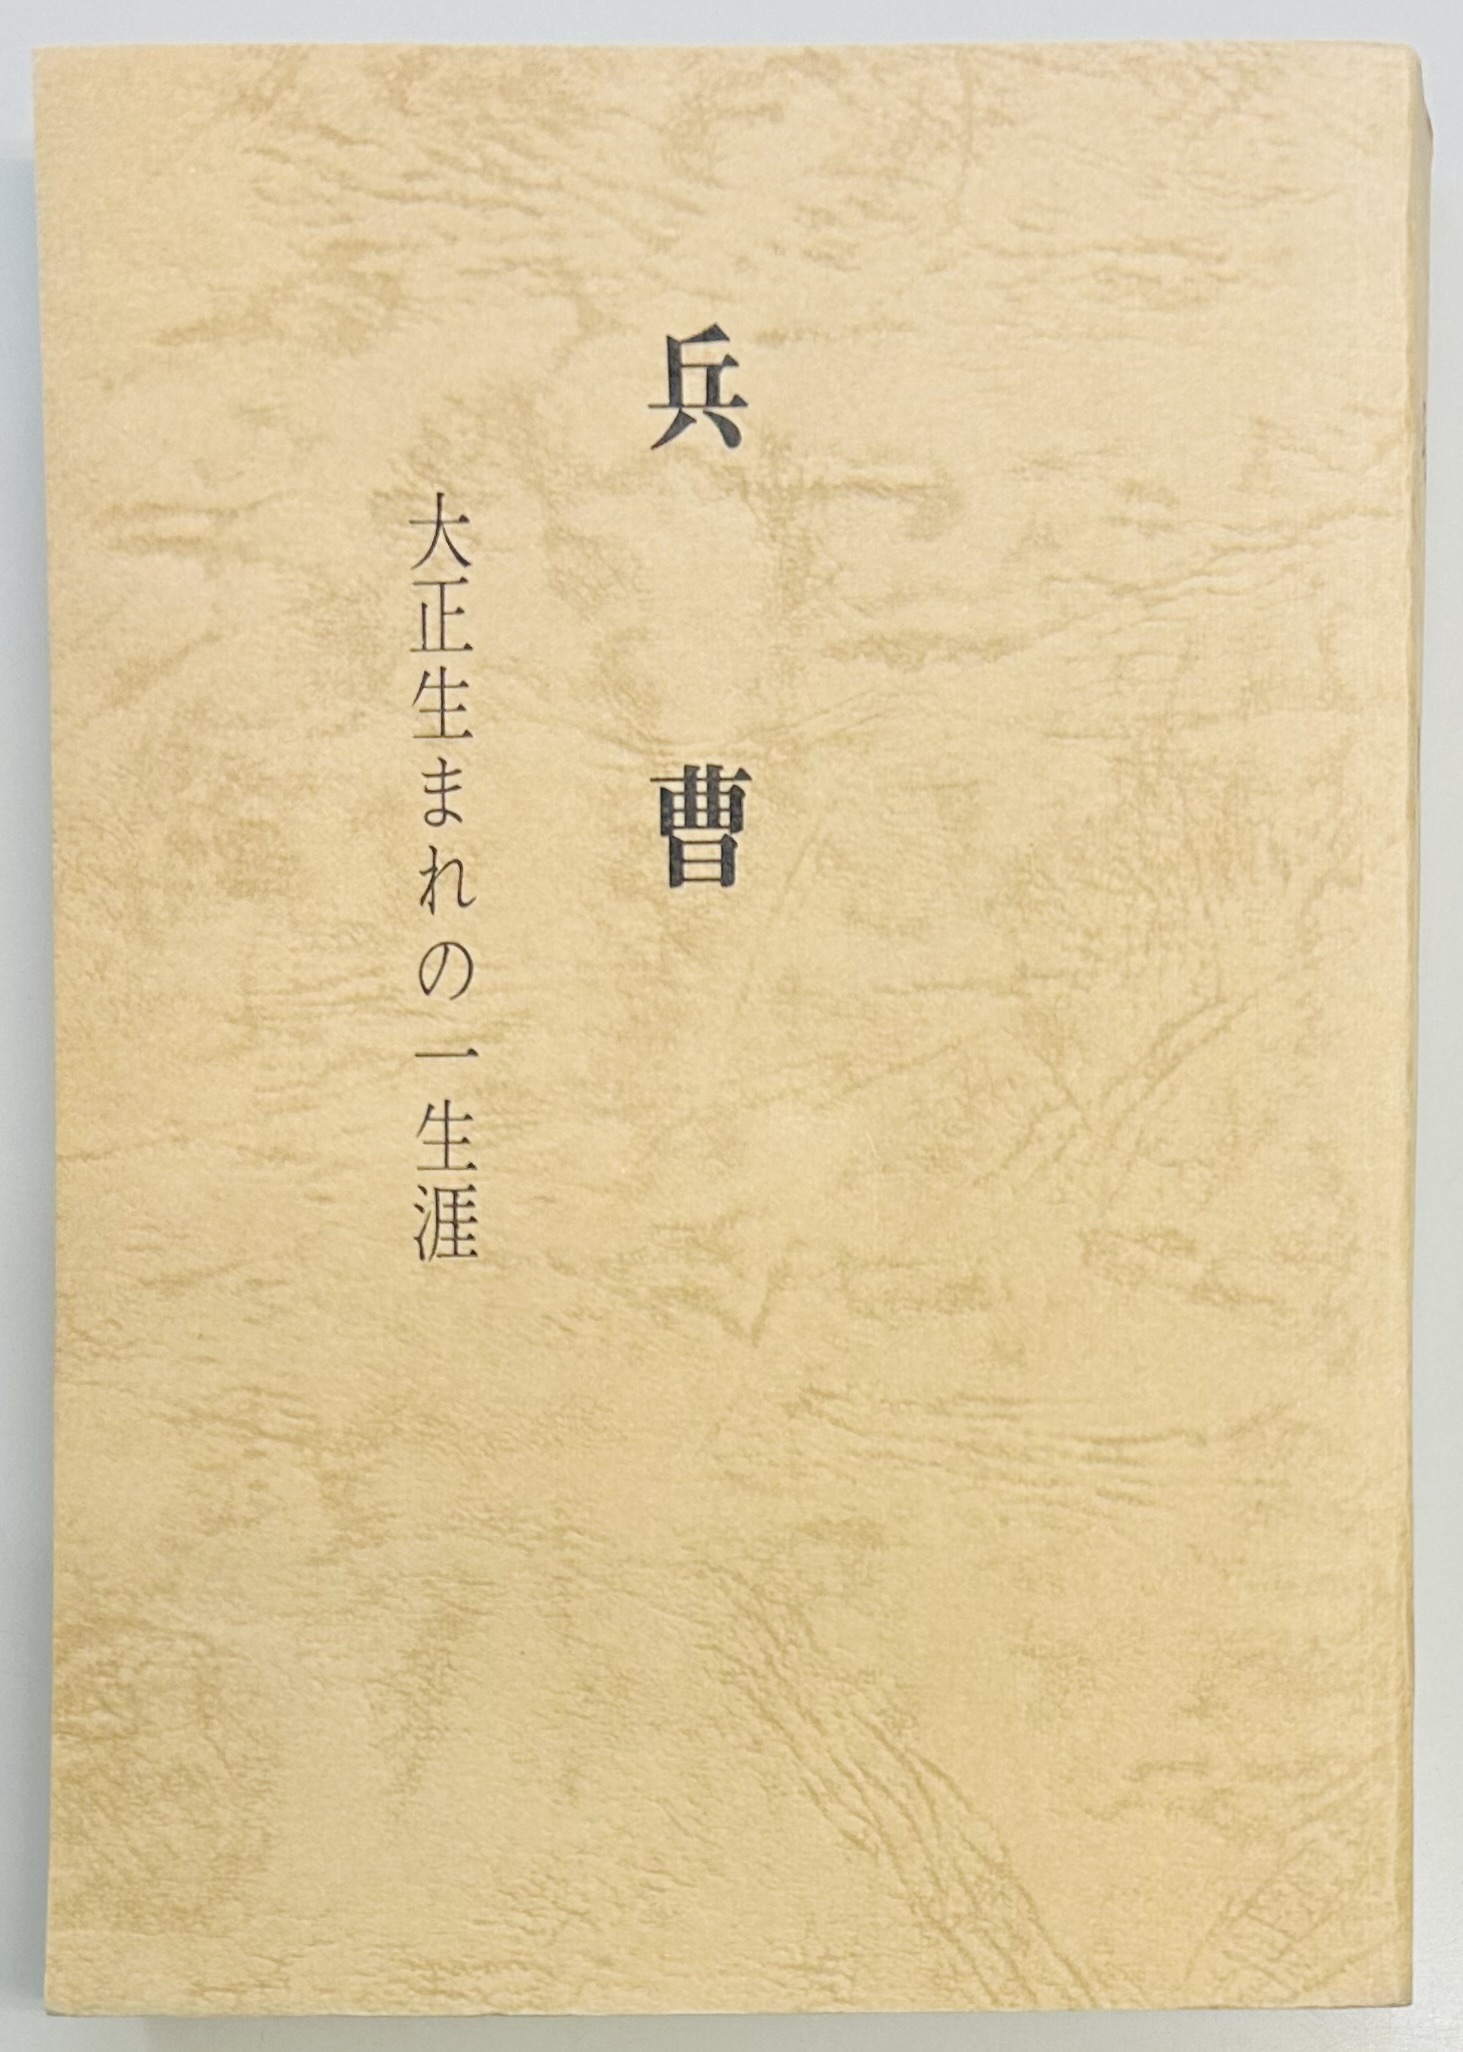 兵曹
大正生まれの一生涯